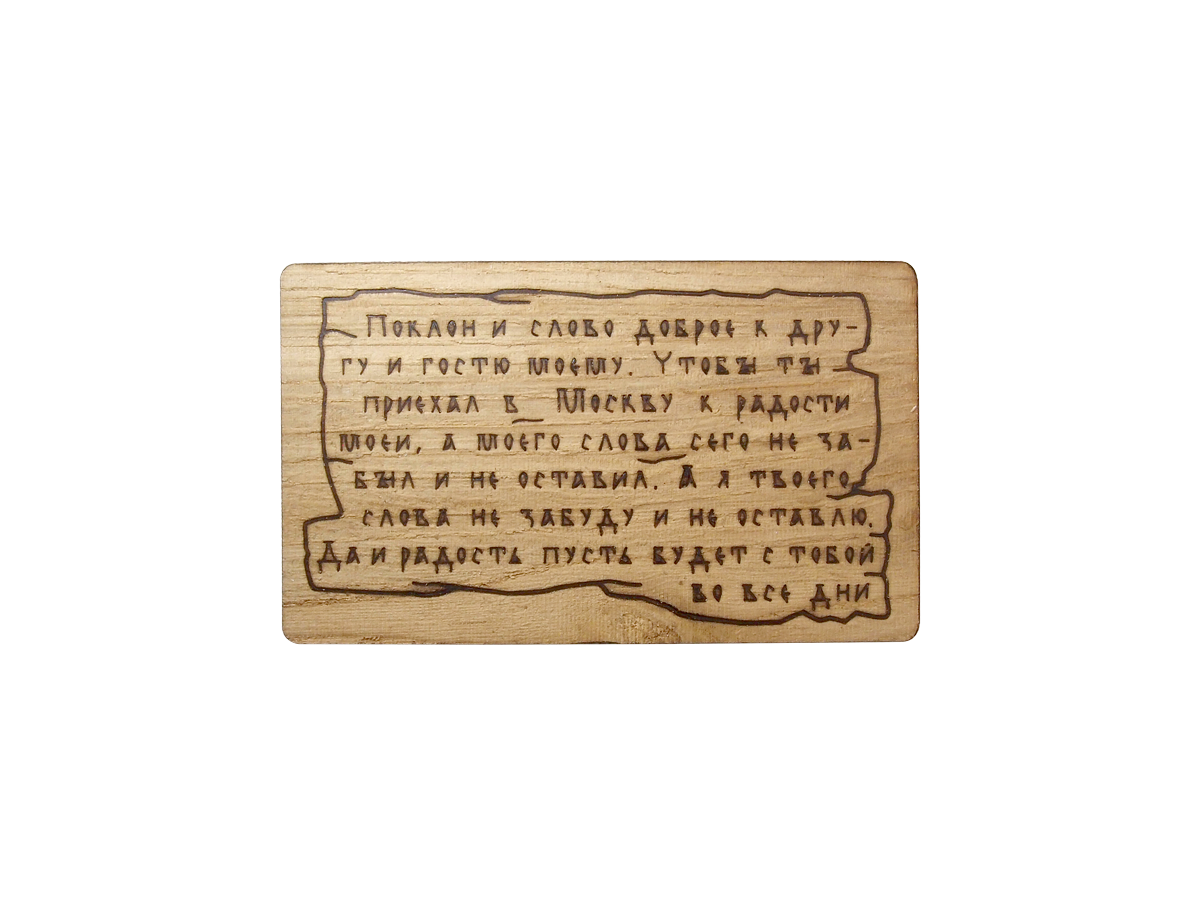 Поклон и слово доброе к дру-
гу и гостю моему. Чтобы ты
приехал в Москву к радости
моеи, а моего слова сего не за-
был и не оставил. А я твоего
слова не забуду и не оставлю.
Да и радость пусть будет с тобой
во все дни